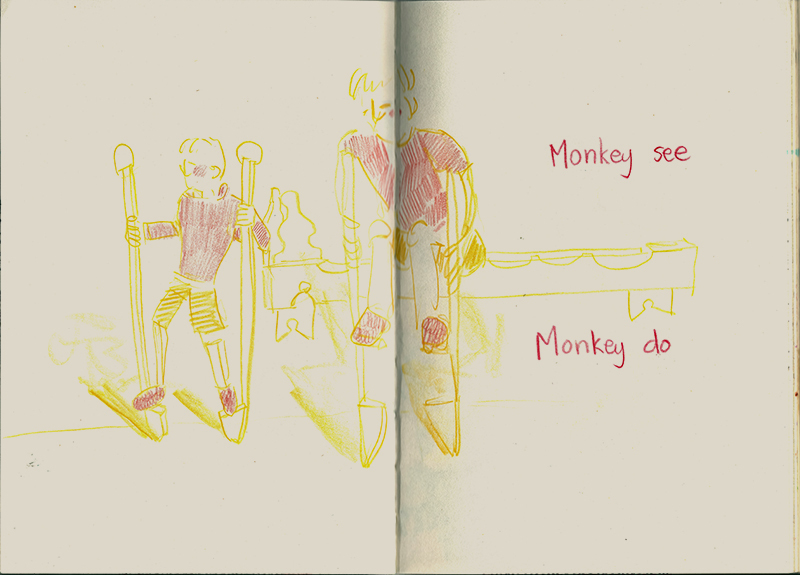 Monkey see
Monkey do